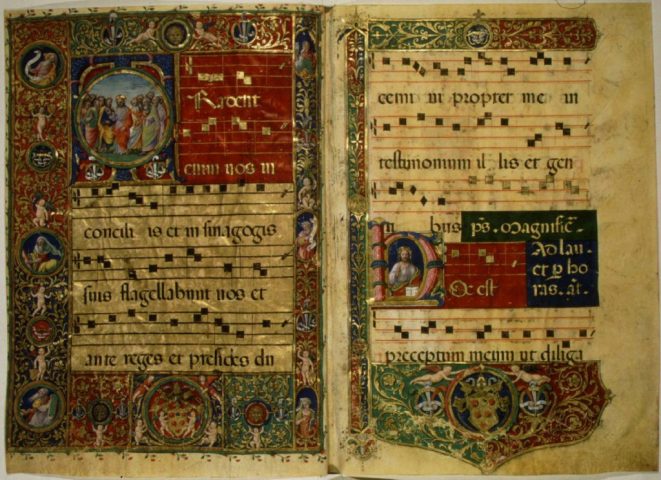 TRadent
enim uos in
concili is et in sinagogis
suis flagellabunt uos et
ante reges et presides du
cemi ni propter me in
testimonium il lis et gen
ti bus ps. Magnific̄.
Ad lau.
et p̱ ho
ras. añ.
Hoc est
preceptum meum ut diliga